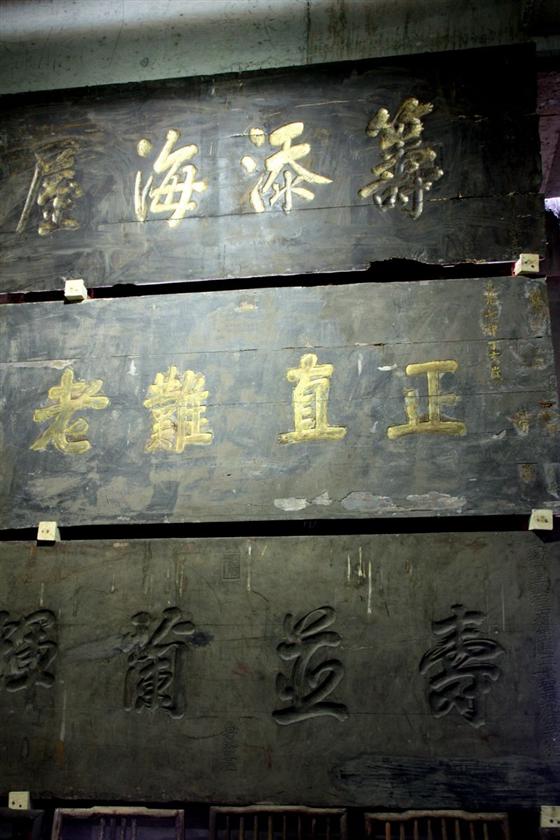 籌添海屋
正直難老
壽並蘭輝